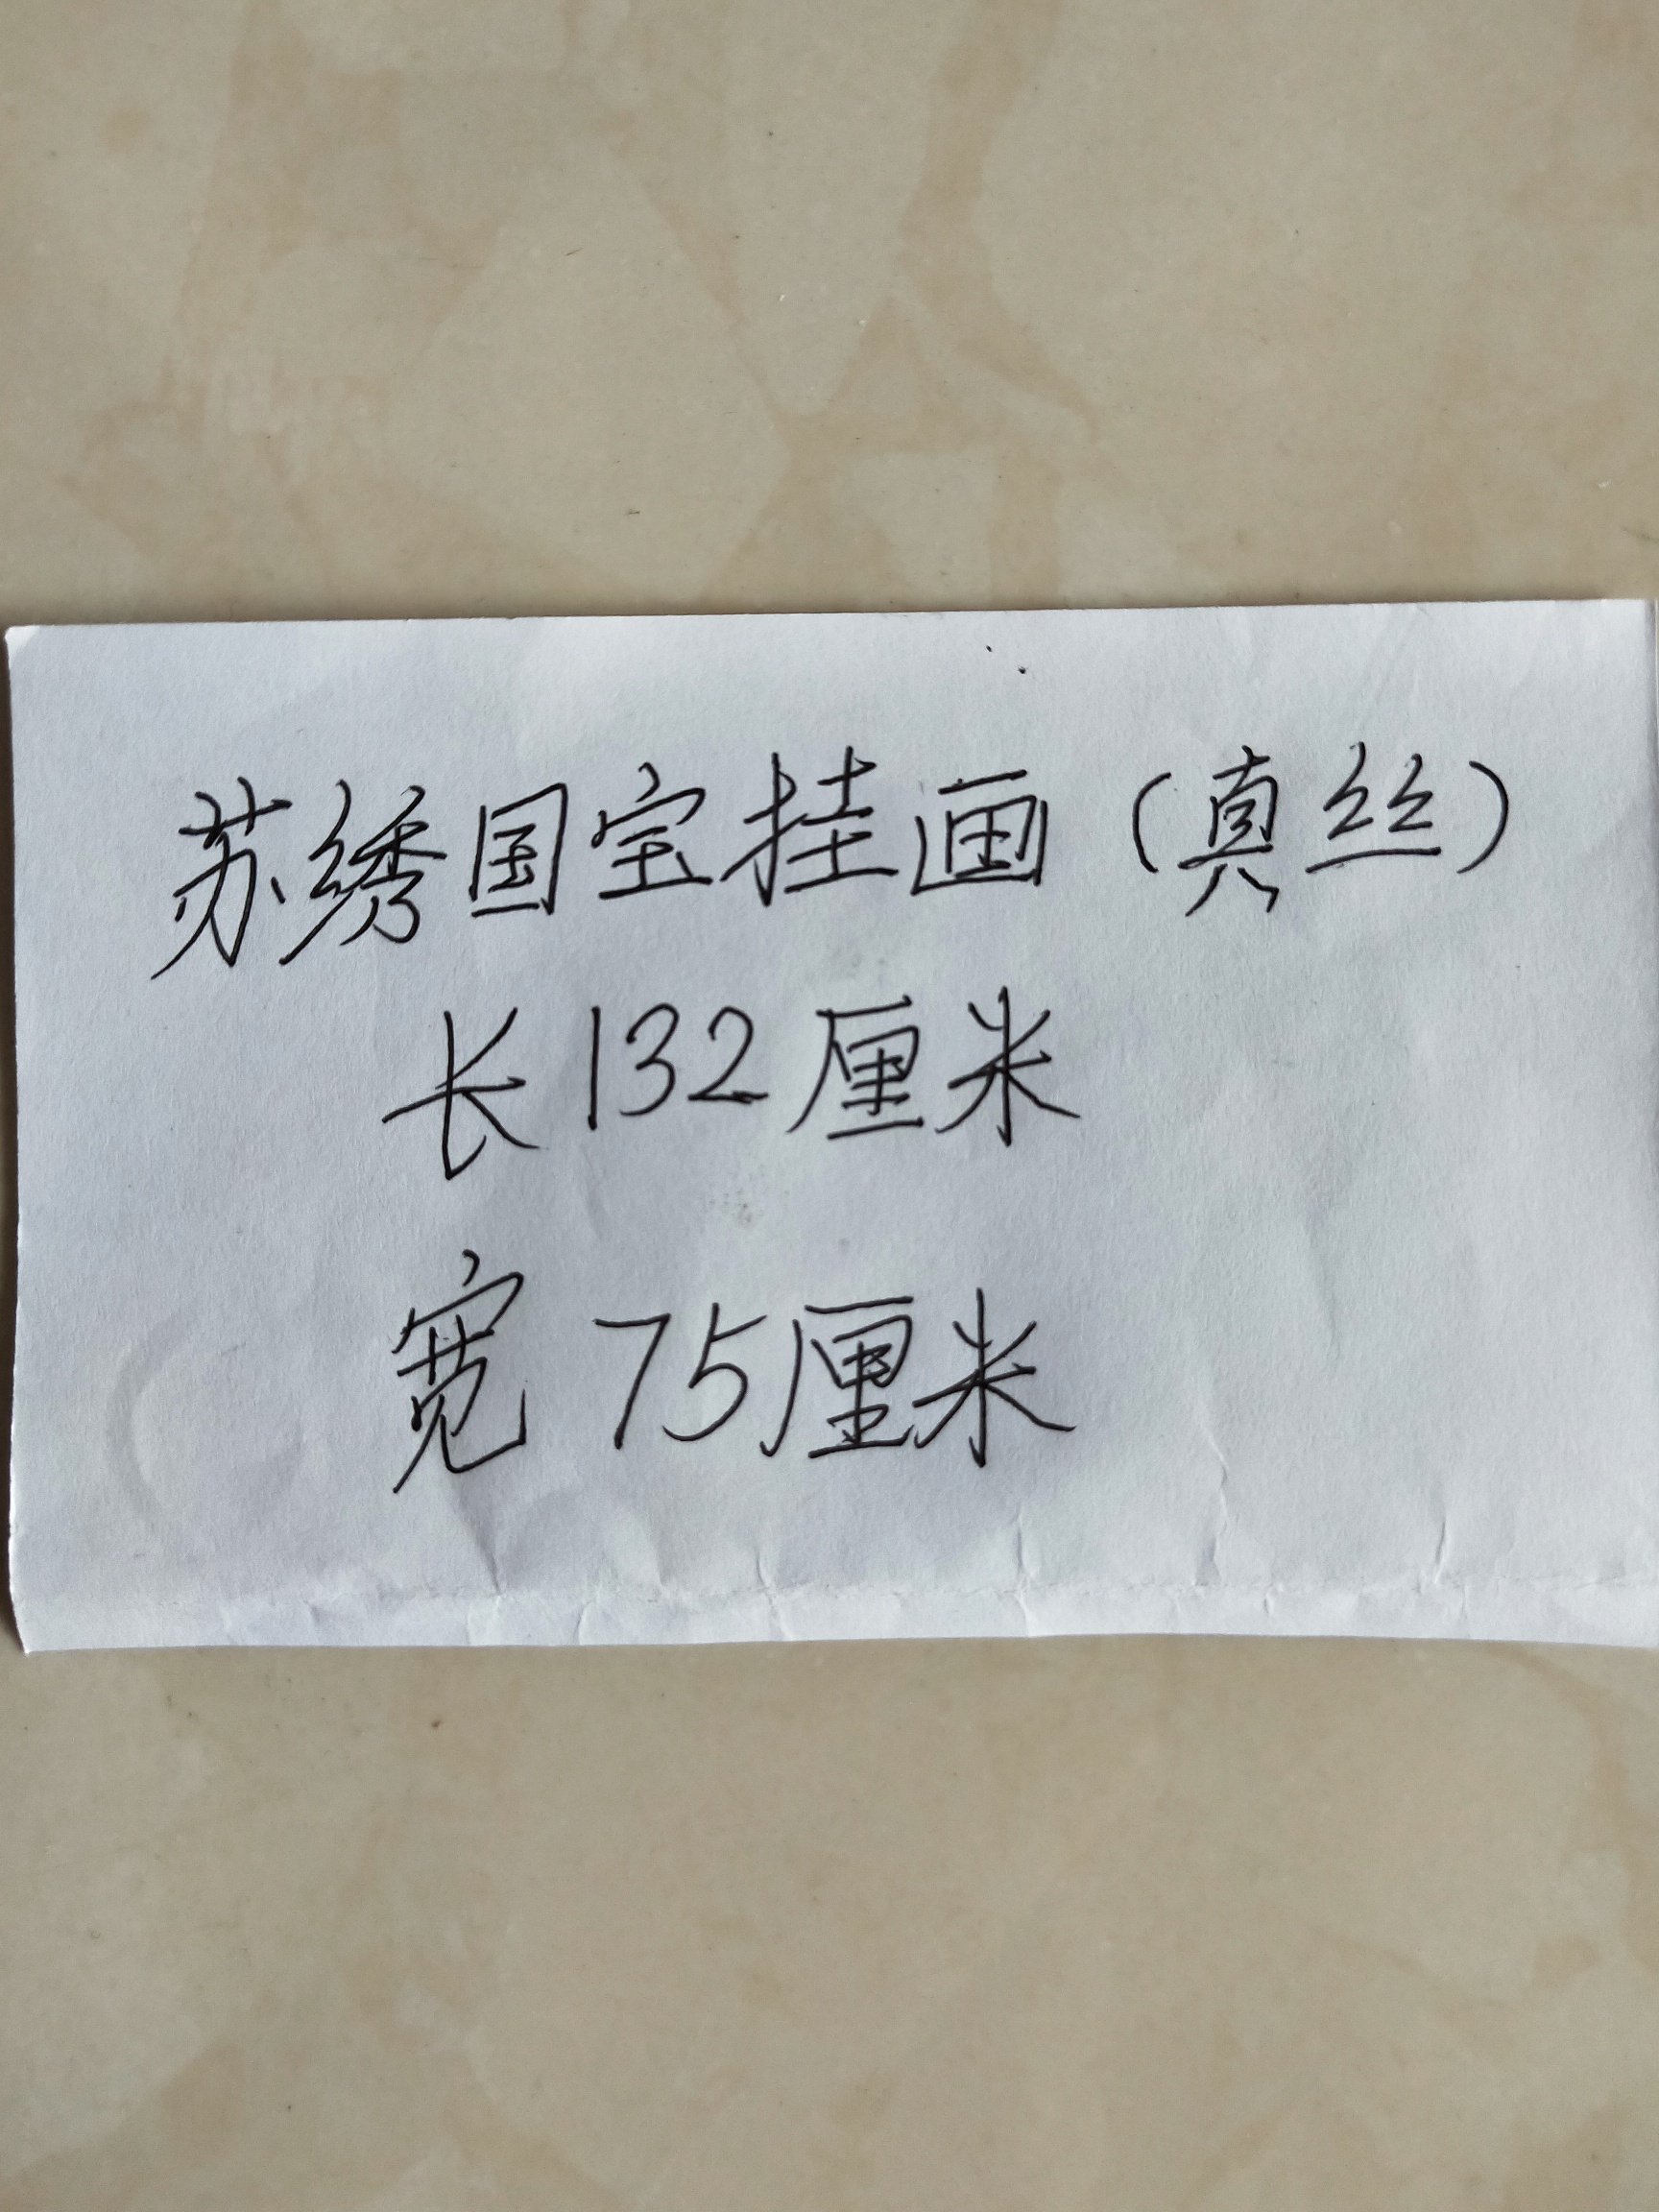 苏绣国宝挂画（真丝）
长132厘米
宽75厘米